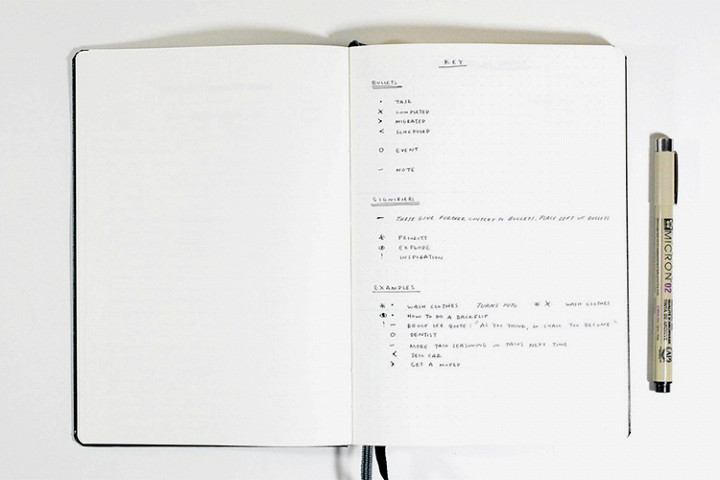 KEY
BULLETS
• TASK
X COMPLETED
> MIGRATED
< SCHEDULED
O EVENT
– NOTE
SIGNIFIERS
— THESE GIVE FURTHER CONTEXT TO BULLETS, PLACE LEFT OF BULLETS
* PRIORITY
EXPLORE
! INSPIRATION
EXAMPLES
* • WASH CLOTHES TURNS INTO * X WASH CLOTHES
• HOW TO DO A BACKFLIP
! – BRUCE LEE QUOTE: "AS YOU THINK, SO SHALL YOU BECOME"
O DENTIST
– MORE TACO SEASONING IN TACOS NEXT TIME
< SELL CAR
> GET A MOPED
MICRON 02